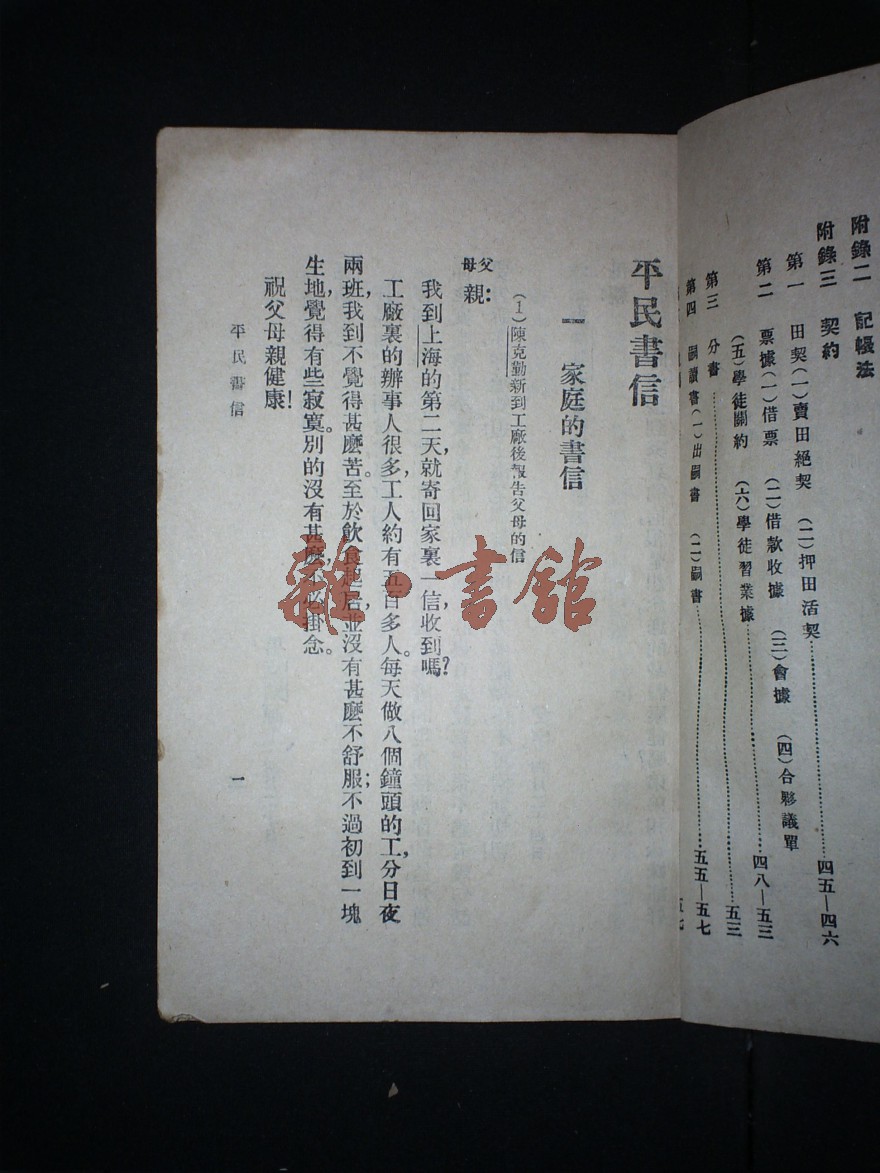 附錄二　記帳法
附錄三　契約
第一　田契（一）賣田絕契　（二）押田活契……………四五—四六
第二　票據（一）借票　（二）借款收據　（三）會據　（四）合夥議單
（五）學徒關約　（六）學徒習業據……………四八—五三
第三　分書……………五三
第四　嗣讓書（一）出嗣書　（二）嗣書……………五五—五七
平民書信
一　家庭的書信
（1）陳克勤新到工廠後報告父母的信
父母親：
我到上海的第二天，就寄回家裏一信，收到嗎？
工廠裏的辦事人很多，工人約有五百多人。每天做八個鐘頭的工，分日夜
兩班，我到不覺得甚麽苦。至於飲食起居，並沒有甚麽不舒服；不過初到一塊
生地，覺得有些寂寞。別的沒有甚麽，不必掛念。
祝父母親健康！
平民書信
一
雜·書館